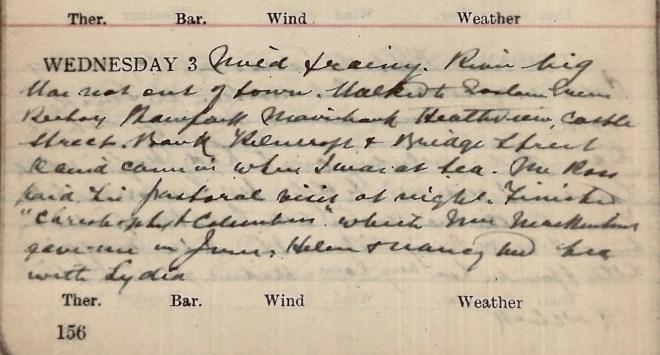 Ther. Bar. Wind Weather
WEDNESDAY 3 Mild & rainy. River big
was not out of town. Walked to
Heathview, Castle
Street. Bank & Bridge Street
came in when I was at tea. Mr Ross
paid his pastoral visit at night. Finished
"Christopher Columbus" which Mrs
gave me in June. Helen & Nancy had tea
with Lydia
Ther. Bar. Wind Weather
156